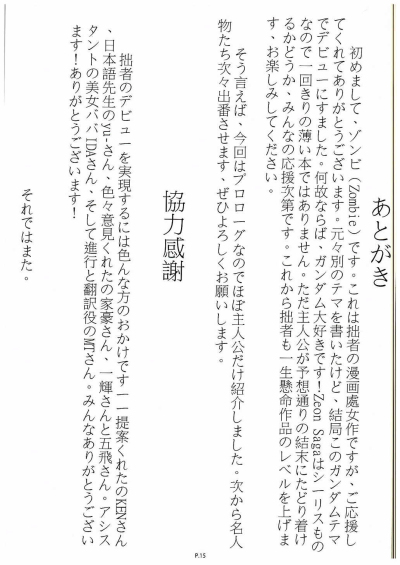 あとがき
初めまして、ゾンビ(Zombie)です。これは拙者の漫画處女作ですが、ご応援し
てくれてありがとうございます。元々別のテマを書いたけど、結局このガンダムテマ
でデビューにすました。何故ならば、ガンダム大好きです!Zeon Sagaはシーリスもの
なので一回きりの薄い本ではありません。ただ主人公が予想通りの結末にたどり着け
るかどうか、みんなの応援次第です。これから拙者も一生懸命作品のレベルを上げま
す、お楽しみしてください。
そう言えば、今回はプロローグなのでほぼ主人公だけ紹介しました。次から名人
物たち次々出番させます、ぜひよろしくお願いします。
協力感謝
拙者のデビューを実現するには色んな方のおかけです——提案くれたのKENさん
、日本語先生のyu-さん、色々意見くれたの家豪さん、一輝さんと五飛さん。アシス
タントの美女ババIDAさん、そして進行と翻訳役のMTさん。みんなありがとうござい
ます!ありがとうございます!
それではまた。
P.15